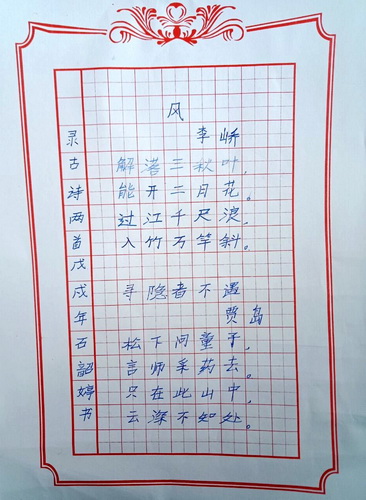 风
李峤
解落三秋叶,
能开二月花。
过江千尺浪,
入竹万竿斜。
寻隐者不遇
贾岛
松下问童子,
言师采药去。
只在此山中,
云深不知处。
录古诗两首戊戌年石韶婷书